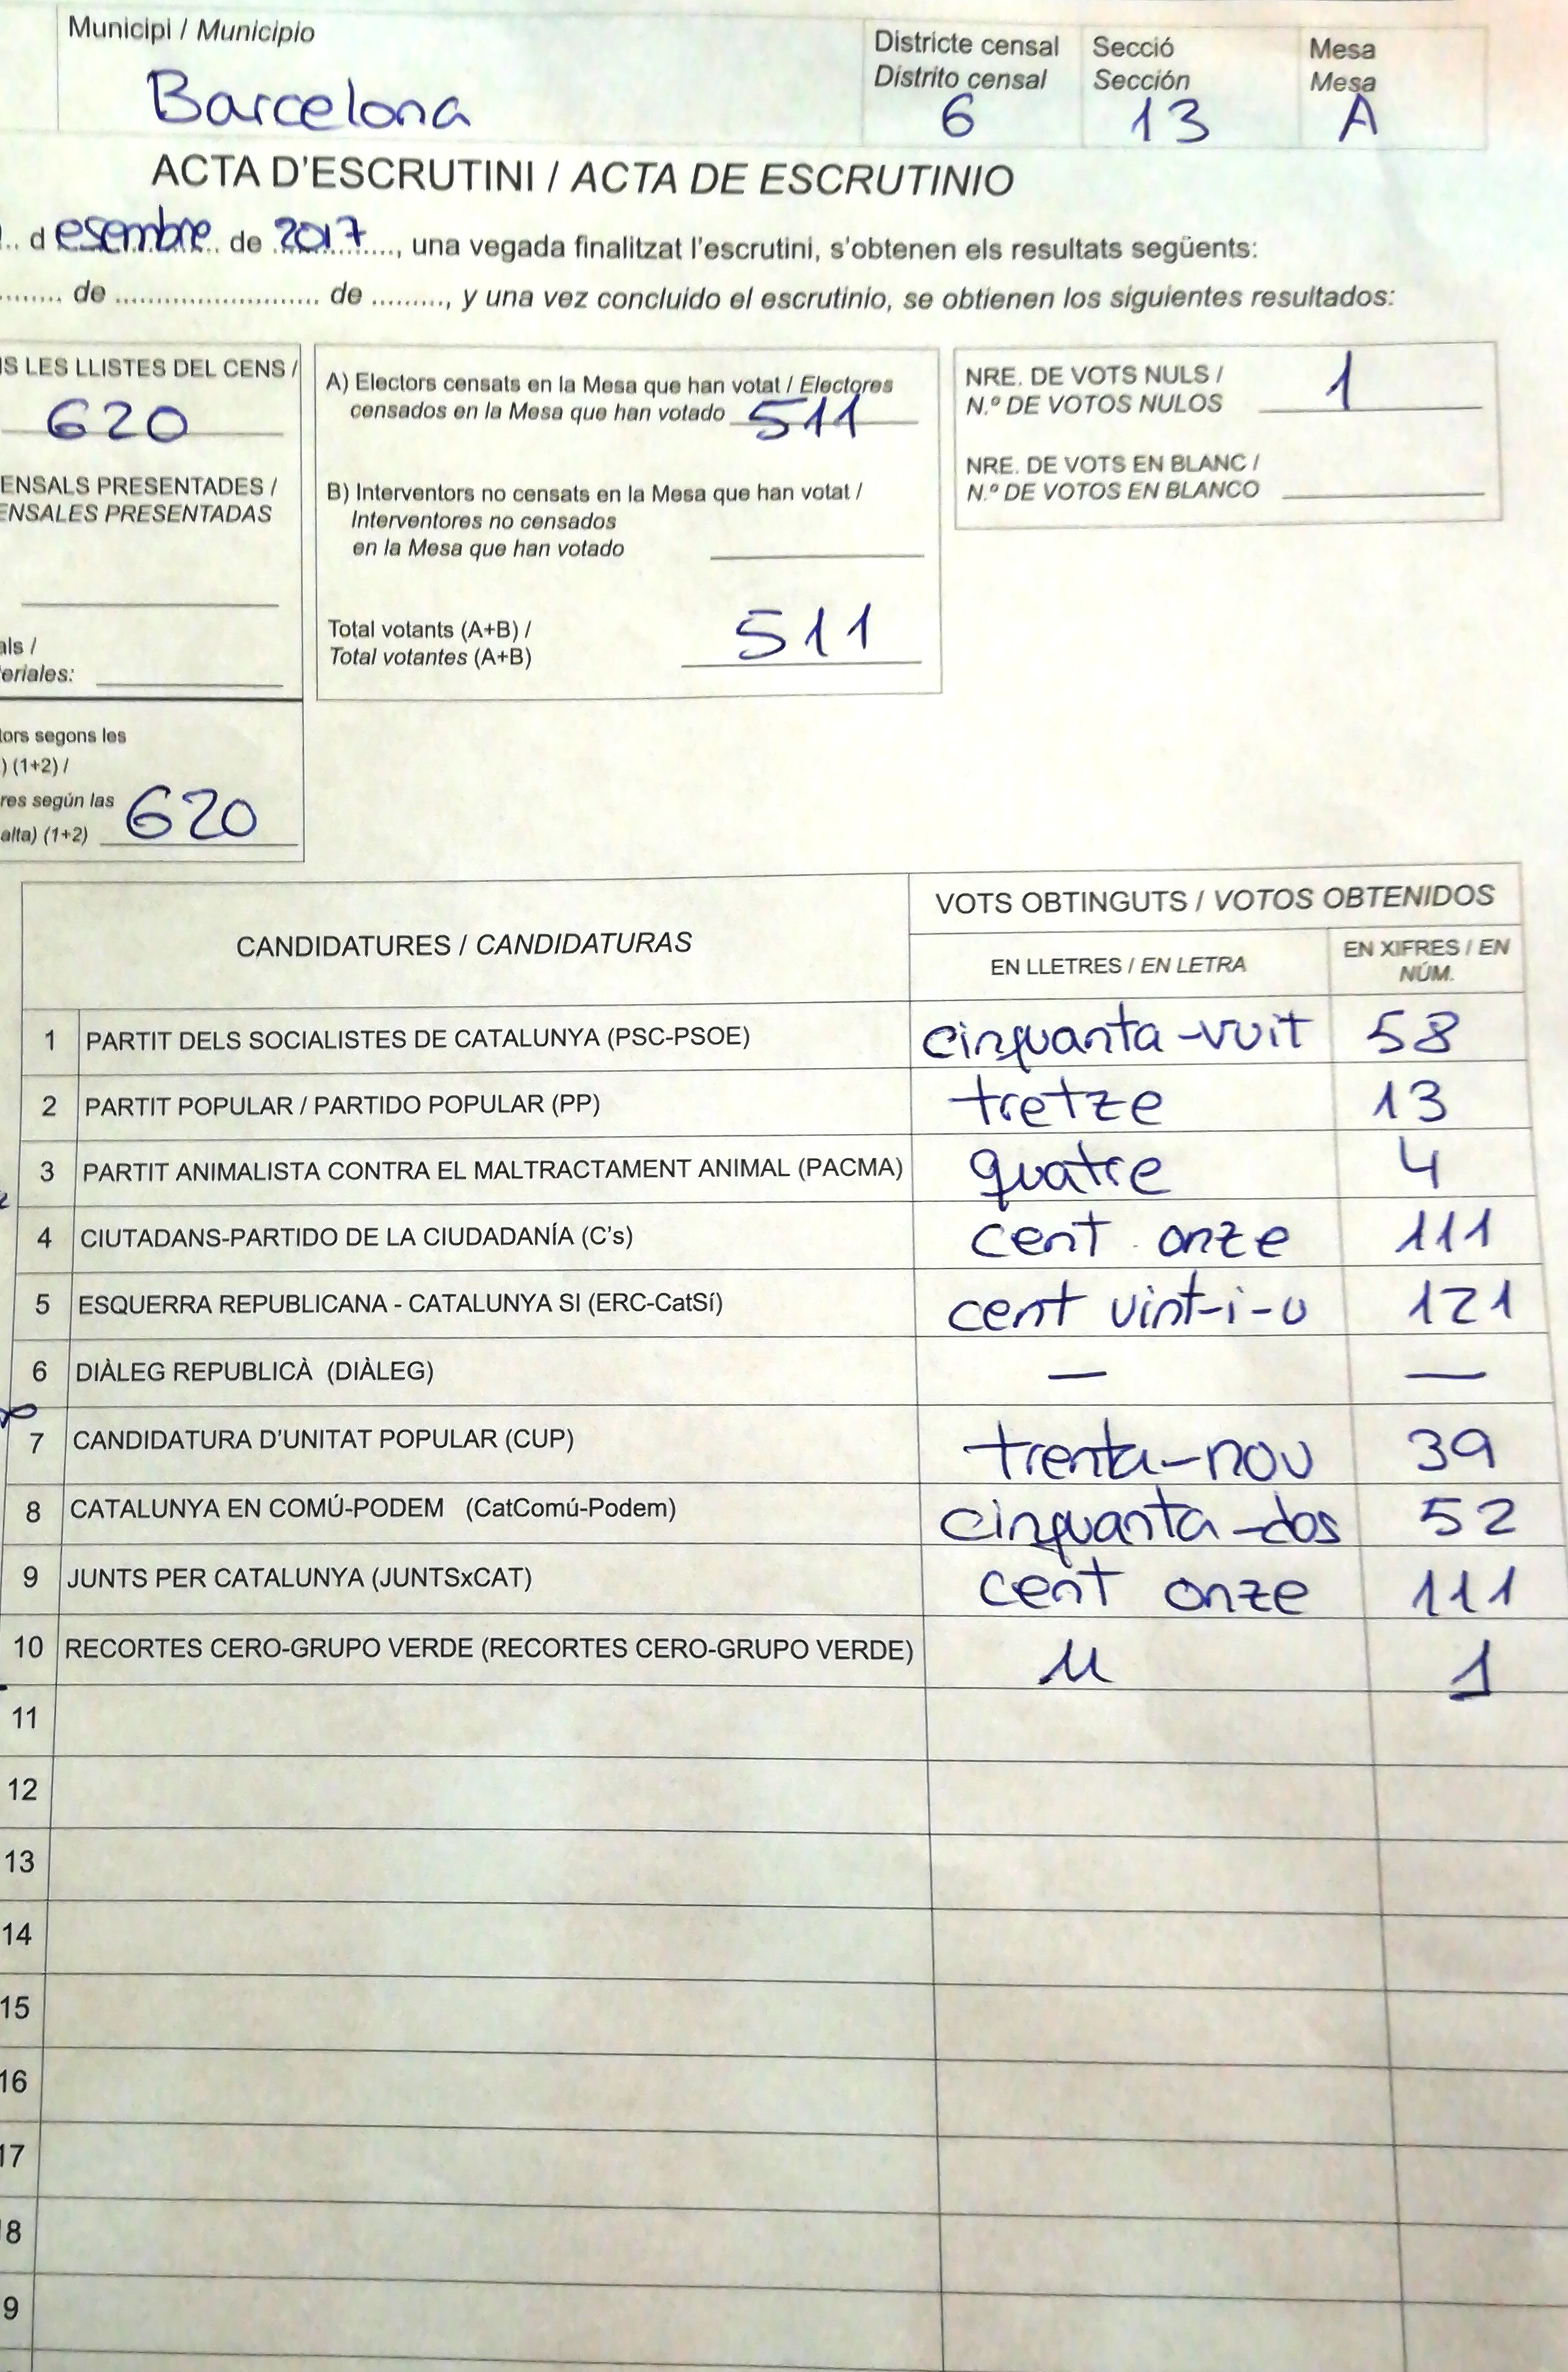 Municipi / Municipio
Barcelona
Districte censal
Distrito censal
6
Secció
Sección
13
Mesa
Mesa
A
ACTA D'ESCRUTINI / ACTA DE ESCRUTINIO
d esembre de 2017, una vegada finalitzat l'escrutini, s'obtenen els resultats següents:
de de , y una vez concluido el escrutinio, se obtienen los siguientes resultados:
LES LLISTES DEL CENS /
620
ENSALS PRESENTADES /
ENSALES PRESENTADAS
als /
eriales:
tors segons les
) (1+2) /
res según las
alta) (1+2) 620
A) Electors censats en la Mesa que han votat / Electores
censados en la Mesa que han votado 511
B) Interventors no censats en la Mesa que han votat /
Interventores no censados
en la Mesa que han votado
Total votants (A+B) /
Total votantes (A+B)
511
NRE. DE VOTS NULS /
N.º DE VOTOS NULOS
1
NRE. DE VOTS EN BLANC /
N.º DE VOTOS EN BLANCO
CANDIDATURES / CANDIDATURAS
VOTS OBTINGUTS / VOTOS OBTENIDOS
EN LLETRES / EN LETRA
EN XIFRES / EN
NÚM.
1 PARTIT DELS SOCIALISTES DE CATALUNYA (PSC-PSOE) cinquanta-vuit 58
2 PARTIT POPULAR / PARTIDO POPULAR (PP) tretze 13
3 PARTIT ANIMALISTA CONTRA EL MALTRACTAMENT ANIMAL (PACMA) quatre 4
4 CIUTADANS-PARTIDO DE LA CIUDADANÍA (C's) cent onze 111
5 ESQUERRA REPUBLICANA - CATALUNYA SI (ERC-CatSí) cent vint-i-u 121
6 DIÀLEG REPUBLICÀ (DIÀLEG) — —
7 CANDIDATURA D'UNITAT POPULAR (CUP) trenta-nou 39
8 CATALUNYA EN COMÚ-PODEM (CatComú-Podem) cinquanta-dos 52
9 JUNTS PER CATALUNYA (JUNTSxCAT) cent onze 111
10 RECORTES CERO-GRUPO VERDE (RECORTES CERO-GRUPO VERDE) u 1
11
12
13
14
15
16
17
8
9